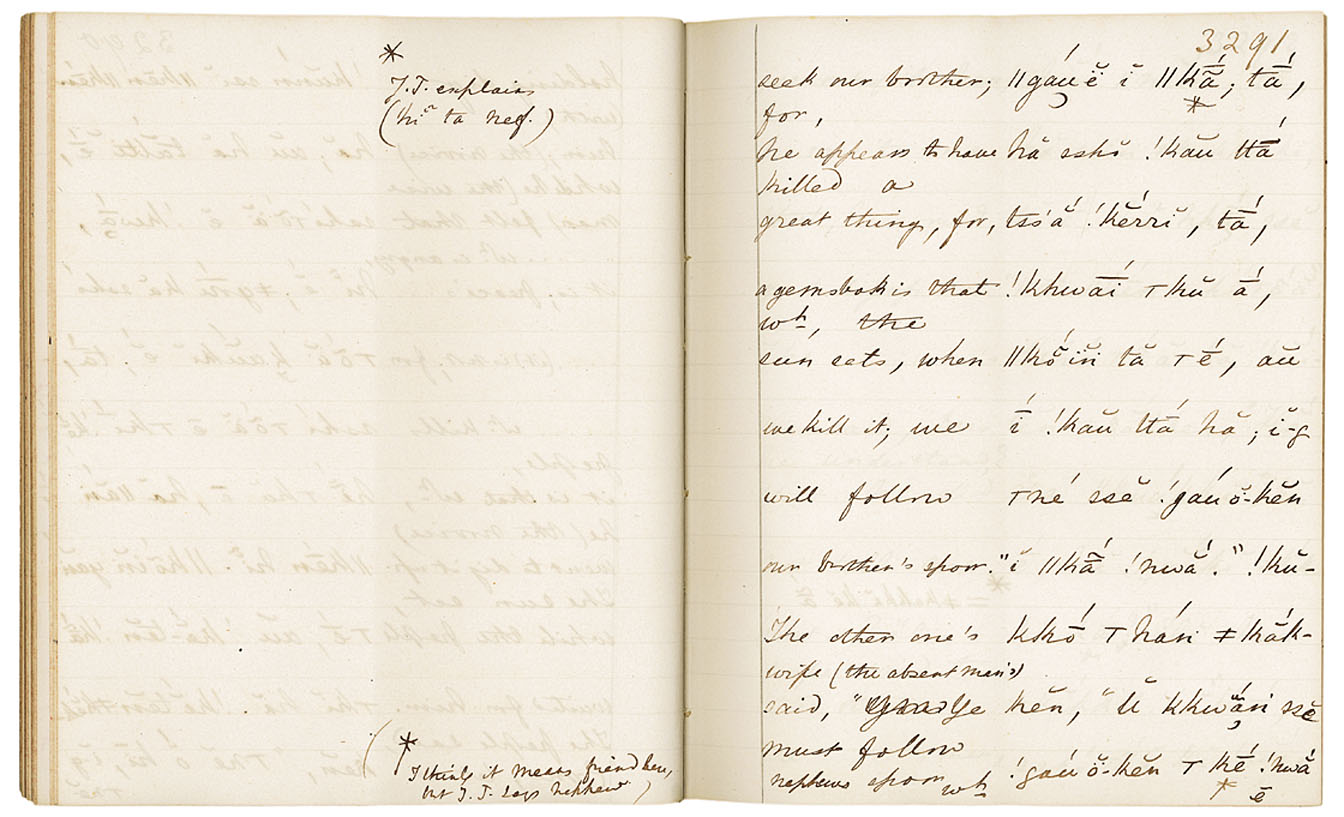 *
J.T. explains
(hĭ ta neg.)
*
I think it means friend here,
but J.T. says nephew)
3291
seek our brother; ǁgáu ĕ ĭ ǁkā́; tā́,
*
for,
he appears to have hă sshŏ !kăŭ ttā́
killed a
great thing, for, tss'ắ !kĕ́rrĭ, tā́,
a gemsbok is that !khwāĭ́ ǀkŭ ā́,
wh, the
sun sets, when ǁkŏ́ĭn tă ǀḗ, aŭ
we kill it; we ī́ !kăŭ ttā́ hă; ĭ-g
will follow ǀné ssĕ !gáu ŏ-kĕn
our brother's spoor." ĭ ǁkā́ !nwắ." !kŭ-
The other one's kkṓ ǀhán ǂkăk-
wife (the absent man's)
said, "Ye kĕn, "ŭ kkwăń ssĕ
must follow
nephews spoor wh !gaú ŏ-kĕn ǀkḗ !nwắ
* ē